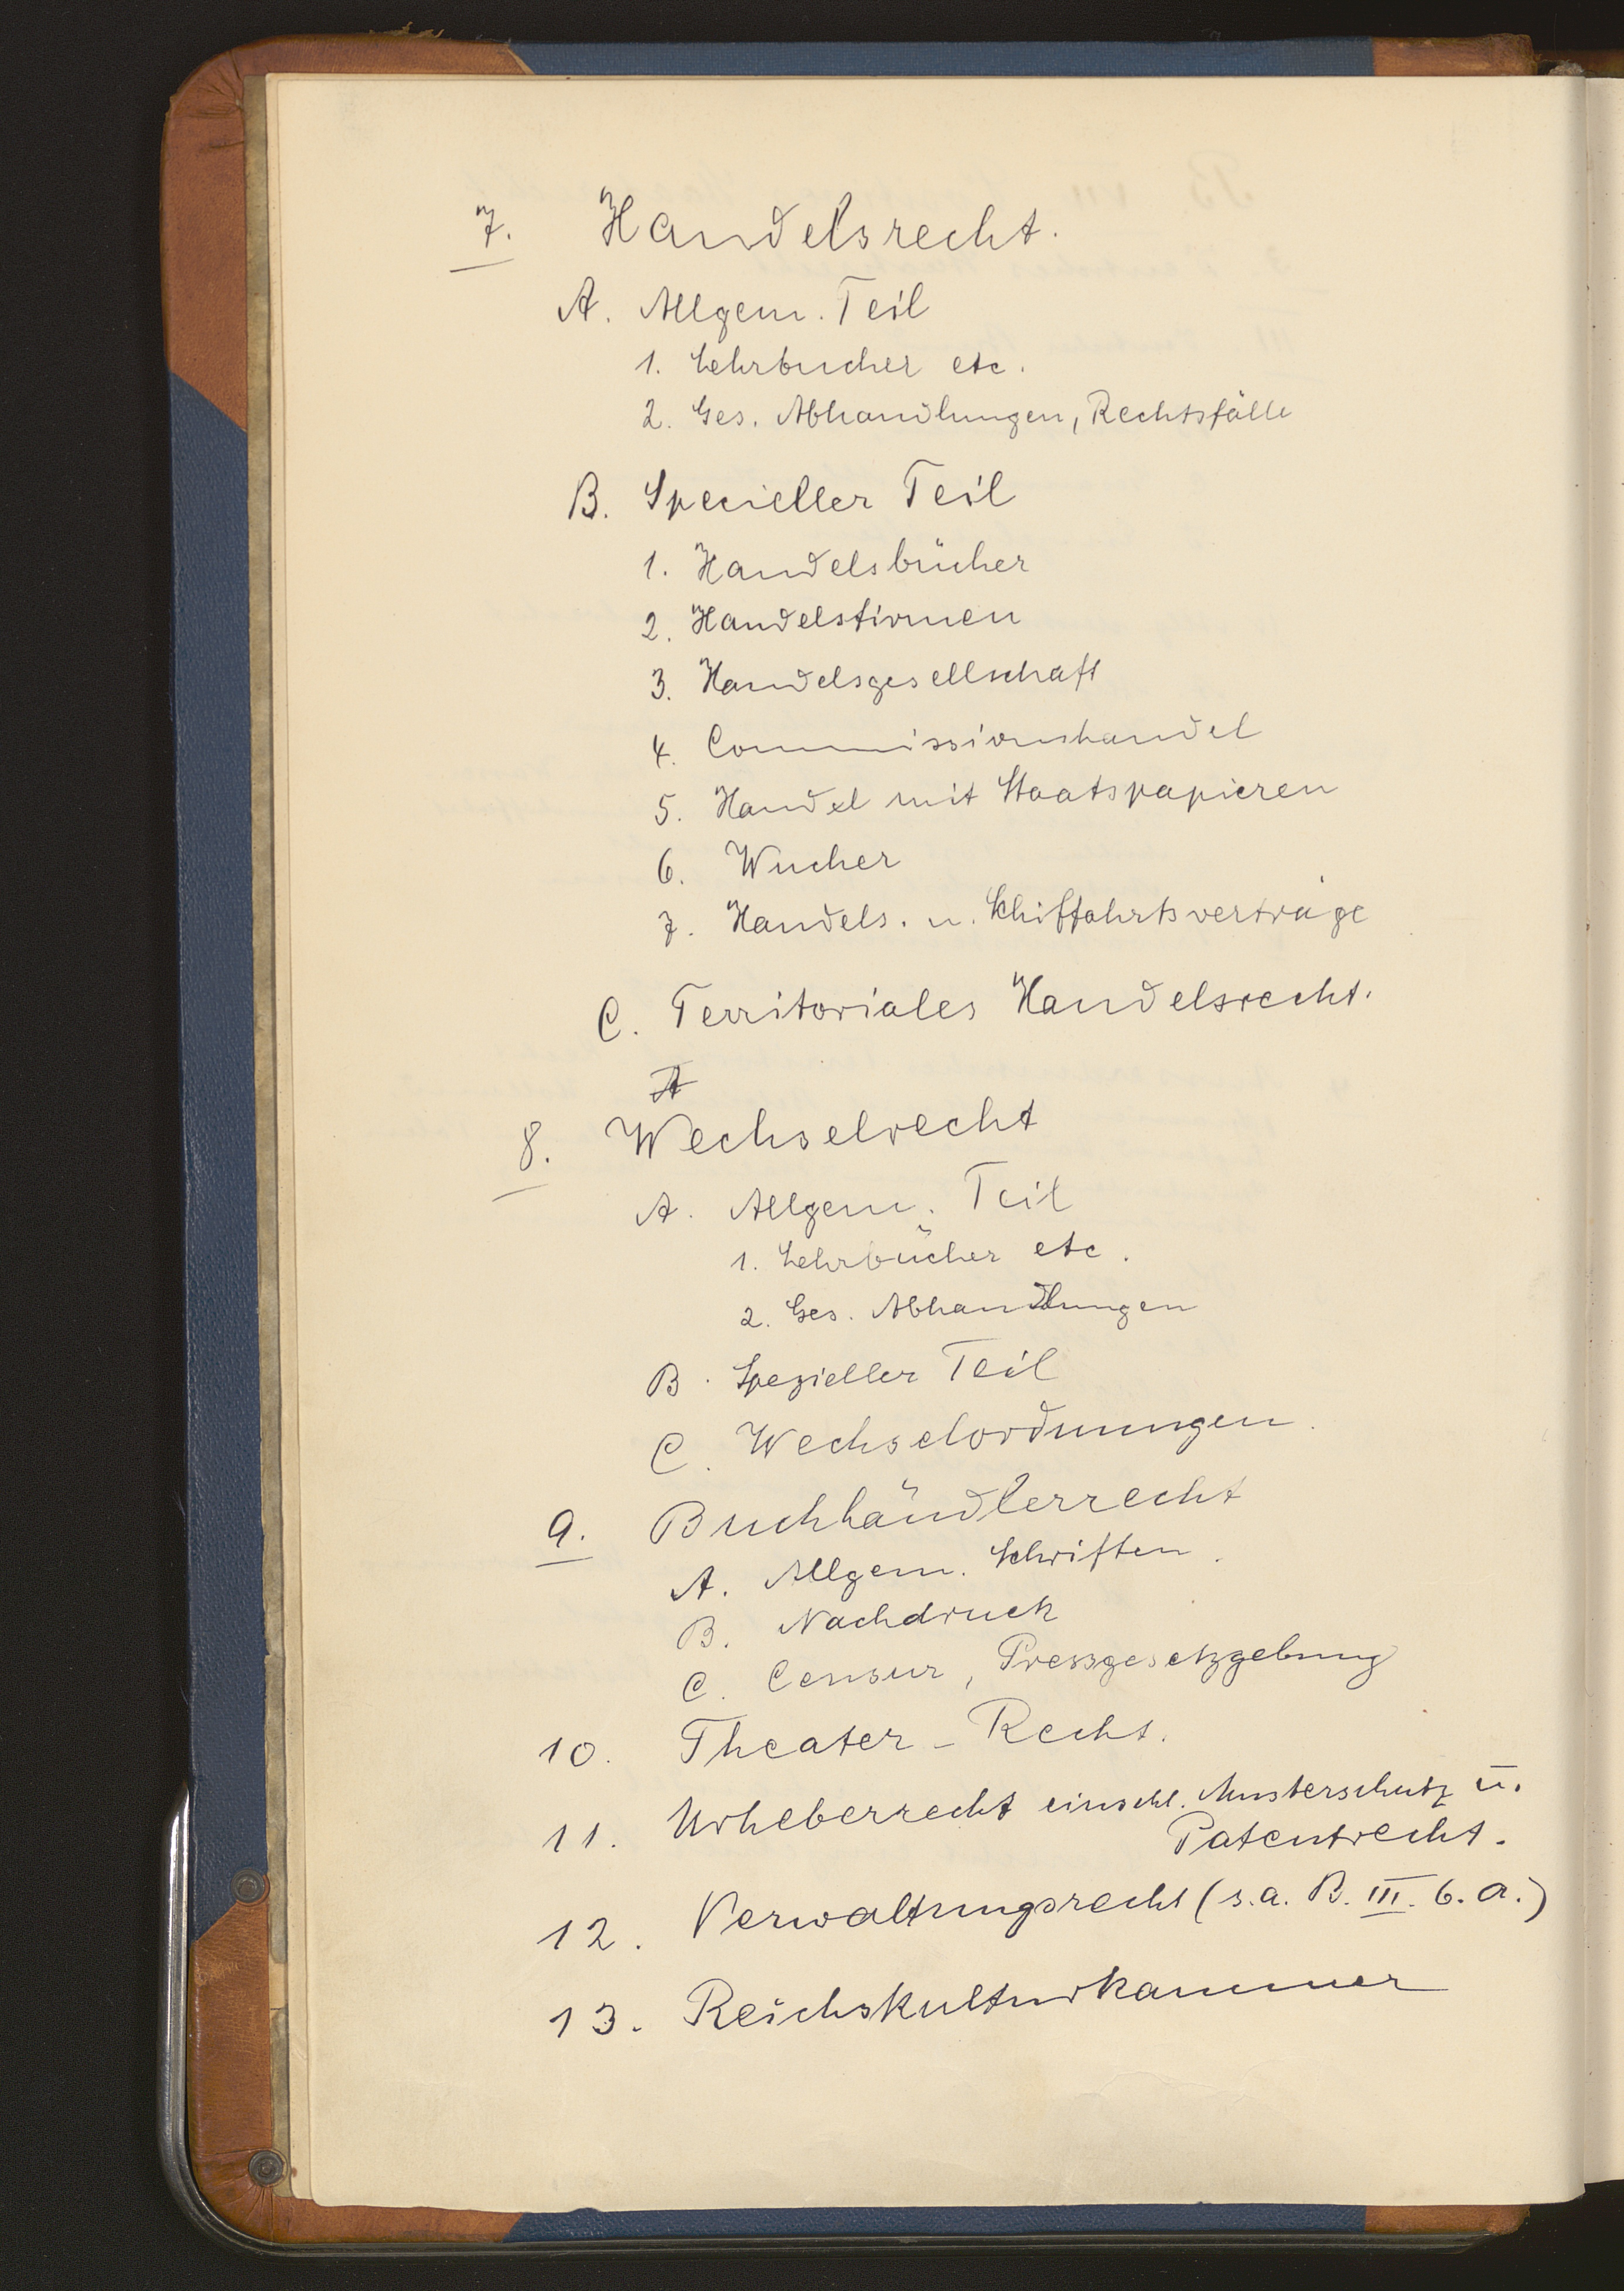 7. Handelsrecht.
A. Allgem. Teil
1. Lehrbucher etc.
2. Ges. Abhandlungen, Rechtsfälle
B. Specieller Teil
1. Handelsbücher
2. Handelsfirmen
3. Handelsgesellschaft
4. Commissionshandel
5. Handel mit Staatspapieren
6. Wucher
7. Handels. u. Schiffahrtsverträge
C. Territoriales Handelsrecht.
A
8. Wechselrecht
A. Allgem. Teil
1. Lehrbücher etc.
2. Ges. Abhandlungen
B. Spezieller Teil
C. Wechselordnungen.
9. Buchhändlerrecht
A. Allgem. Schriften.
B. Nachdruck
C. Censur, Pressgesetzgebung
10. Theater-Recht.
11. Urheberrecht einschl. Musterschutz u.
Patentrecht.
12. Verwaltungsrecht (s.a. B. III. 6. a.)
13. Reichskulturkammer